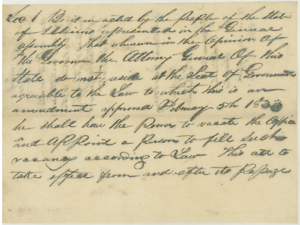 Sec 1 Be it enacted by the people of the State
of Illinois represented in the General
assembly That whenever in the opinion of
the Governor the Attorny General of this
State do not, at the Seat of Government
agreeable to the Law to which this is an
amendment approved February 5th
he shall have the Power to vacate the office
and appoint a Person to fill such
vacancy according to Law This act to
take effect from and after its passage